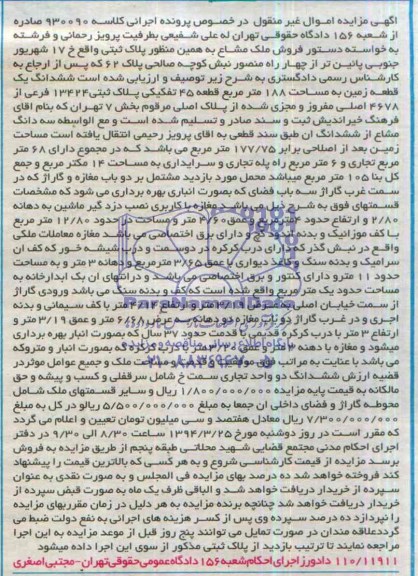 آگهی مزایده اموال غیر منقول در خصوص پرونده اجرائی کلاسه ۹۳۰۰۹۰ صادره
از شعبه ۱۵۶ دادگاه حقوقی تهران له علی شفیعی بطرفیت پرویز رحمانی و فرشته
به خواسته دستور فروش ملک مشاع به همین منظور پلاک ثبتی واقع خ ۱۷ شهریور
جنوبی پائین تر از چهار راه منصور نبش کوچه صالحی پلاک ۶۲ که پس از ارجاع به
کارشناس رسمی دادگستری به شرح زیر توصیف و ارزیابی شده است ششدانگ یک
قطعه زمین به مساحت ۱۸۸ متر مربع قطعه ۴۵ تفکیکی پلاک ثبتی ۱۳۴۲۴ فرعی از
۴۶۷۸ اصلی مفروز و مجزی شده از پلاک اصلی مرقوم بخش ۷ تهران که بنام آقای
فرهنگ خیراندیش ثبت و سند صادر و تسلیم شده است و مع الواسطه سه دانگ
مشاع از ششدانگ آن طبق سند قطعی به آقای پرویز رحیمی انتقال یافته است مساحت
زمین بعد از اصلاحی برابر ۱۷۷/۷۵ متر مربع می باشد که در مجموع دارای ۶۸ متر
مربع تجاری و ۶ متر مربع راه پله تجاری و سرایداری به مساحت ۱۴ مکتر مربع و جمع
کل بنا ۱۰۵ متر مربع میباشد محمل مورد بازدید مشتمل بر دو باب مغازه و گاراژ که در
سمت غرب گاراژ سه باب فضای که بصورت انباری بهره برداری می شود که مشخصات
قسمتهای فوق به شرح ذیل می باشد مغازه با کاربری نصب دزد گیر ماشین به دهانه
۲/۸۰ و ارتفاع حدود متر و عمق ۴/۶۰ متر و مساحت در حدود ۱۲/۸۰ متر مربع
با کف موزائیک و بدنه اندود گچ و دارای برق اختصاصی می باشد مغازه معاملات ملکی
واقع در نبش گذر که دارای درب کرکره در دوسمت و درب شیشه خور که کف آن
سرامیک و بدنه سنگ و کاغذ دیواری با عمق ۳/۶۵ مترمربع و دهانه ۳ متر و به مساحت
حدود ۱۱ متر و دارای کنتور و برق اختصاصی می باشد و در انتهای آن یک آبدارخانه به
مساحت حدود یک متر مربع واقع شده است که کف و بدنه سنگ می باشد ورودی گاراژ
از سمت خیابان اصلی به عرض ۳/۱۹ متر و ارتفاع ۲/۸۴ متر با کف سیمانی و بدنه
آجری و در غرب گاراژ دو باب مغازه دو دهانه به عرض ۶/۶۸ متر و عمق ۳/۱۹ متر و
ارتفاع ۳ متر با درب کرکره قدیمی با قدمت حدود ۳۷ سال که بصورت انبار بهره برداری
میشود و مغازه با دهنه ۳ متر و عمق ۴/۶۰ متر با درب کرکره که بصورت انبار و متروکه
می باشد با عنایت به مراتب فوق موقعیت مکانی و مساحت ملک و جمیع عوامل موثر در
قضیه ارزش ششدانگ دو واحد تجاری سمت خ شامل سرقفلی و کسب و پیشه و حق
مالکانه به قیمت پایه مزایده ۱/۸۰۰/۰۰۰/۰۰۰ ریال و سایر قسمتهای ملک شامل
محوطه گاراژ و فضای داخلی آن جمعا به مبلغ ۵/۵۰۰/۰۰۰/۰۰۰ ریالو در کل به مبلغ
۷/۳۰۰/۰۰۰/۰۰۰ ریال معادل هفتصد و سی میلیون تومان تعیین و اعلام می گردد
که مقرر است در روز دوشنبه مورخ ۱۳۹۴/۳/۲۵ ساعت ۸/۳۰ الی ۹/۳۰ در دفتر
اجرای احکام مدنی مجتمع قضایی شهید محلاتی طبقه پنجم از طریق مزایده به فروش
برسد مزایده از قیمت کارشناسی شروع و به هر کسی که بالاترین قیمت را پیشنهاد
کند فروخته خواهد شد ده درصد بهای مزایده فی المجلس و به صورت نقدی به عنوان
سپرده از خریدار دریافت خواهد شد و الباقی ظرف یک ماه به صورت قبض سپرده از
خریدار دریافت خواهد شد چنانچه برنده مزایده به هر دلیل در زمان مقرربهای مزایده
را نپردازد ده درصد سپرده وی پس از کسر هزینه های اجرائی به نفع دولت ضبط می
گردد علاقه مندان در صورت تمایل می توانند پنج روز قبل از موعد مزایده به این اجرا
مراجعه نمایند تا ترتیب بازدید از پلاک ثبتی مذکور از سوی این اجرا داده میشود
۱۱۰/۱۱۹۱۱ دادورز اجرای احکام شعبه ۱۵۶ دادگاه عمومی حقوقی تهران - مجتبی اصغری